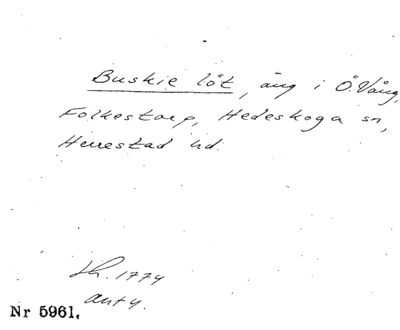 Buskie löt, äng i Ö. Vång,
Folkestorp, Hedeskoga sn,
Herrestad hd.
Lh. 1774
ant 4.
Nr 5961.